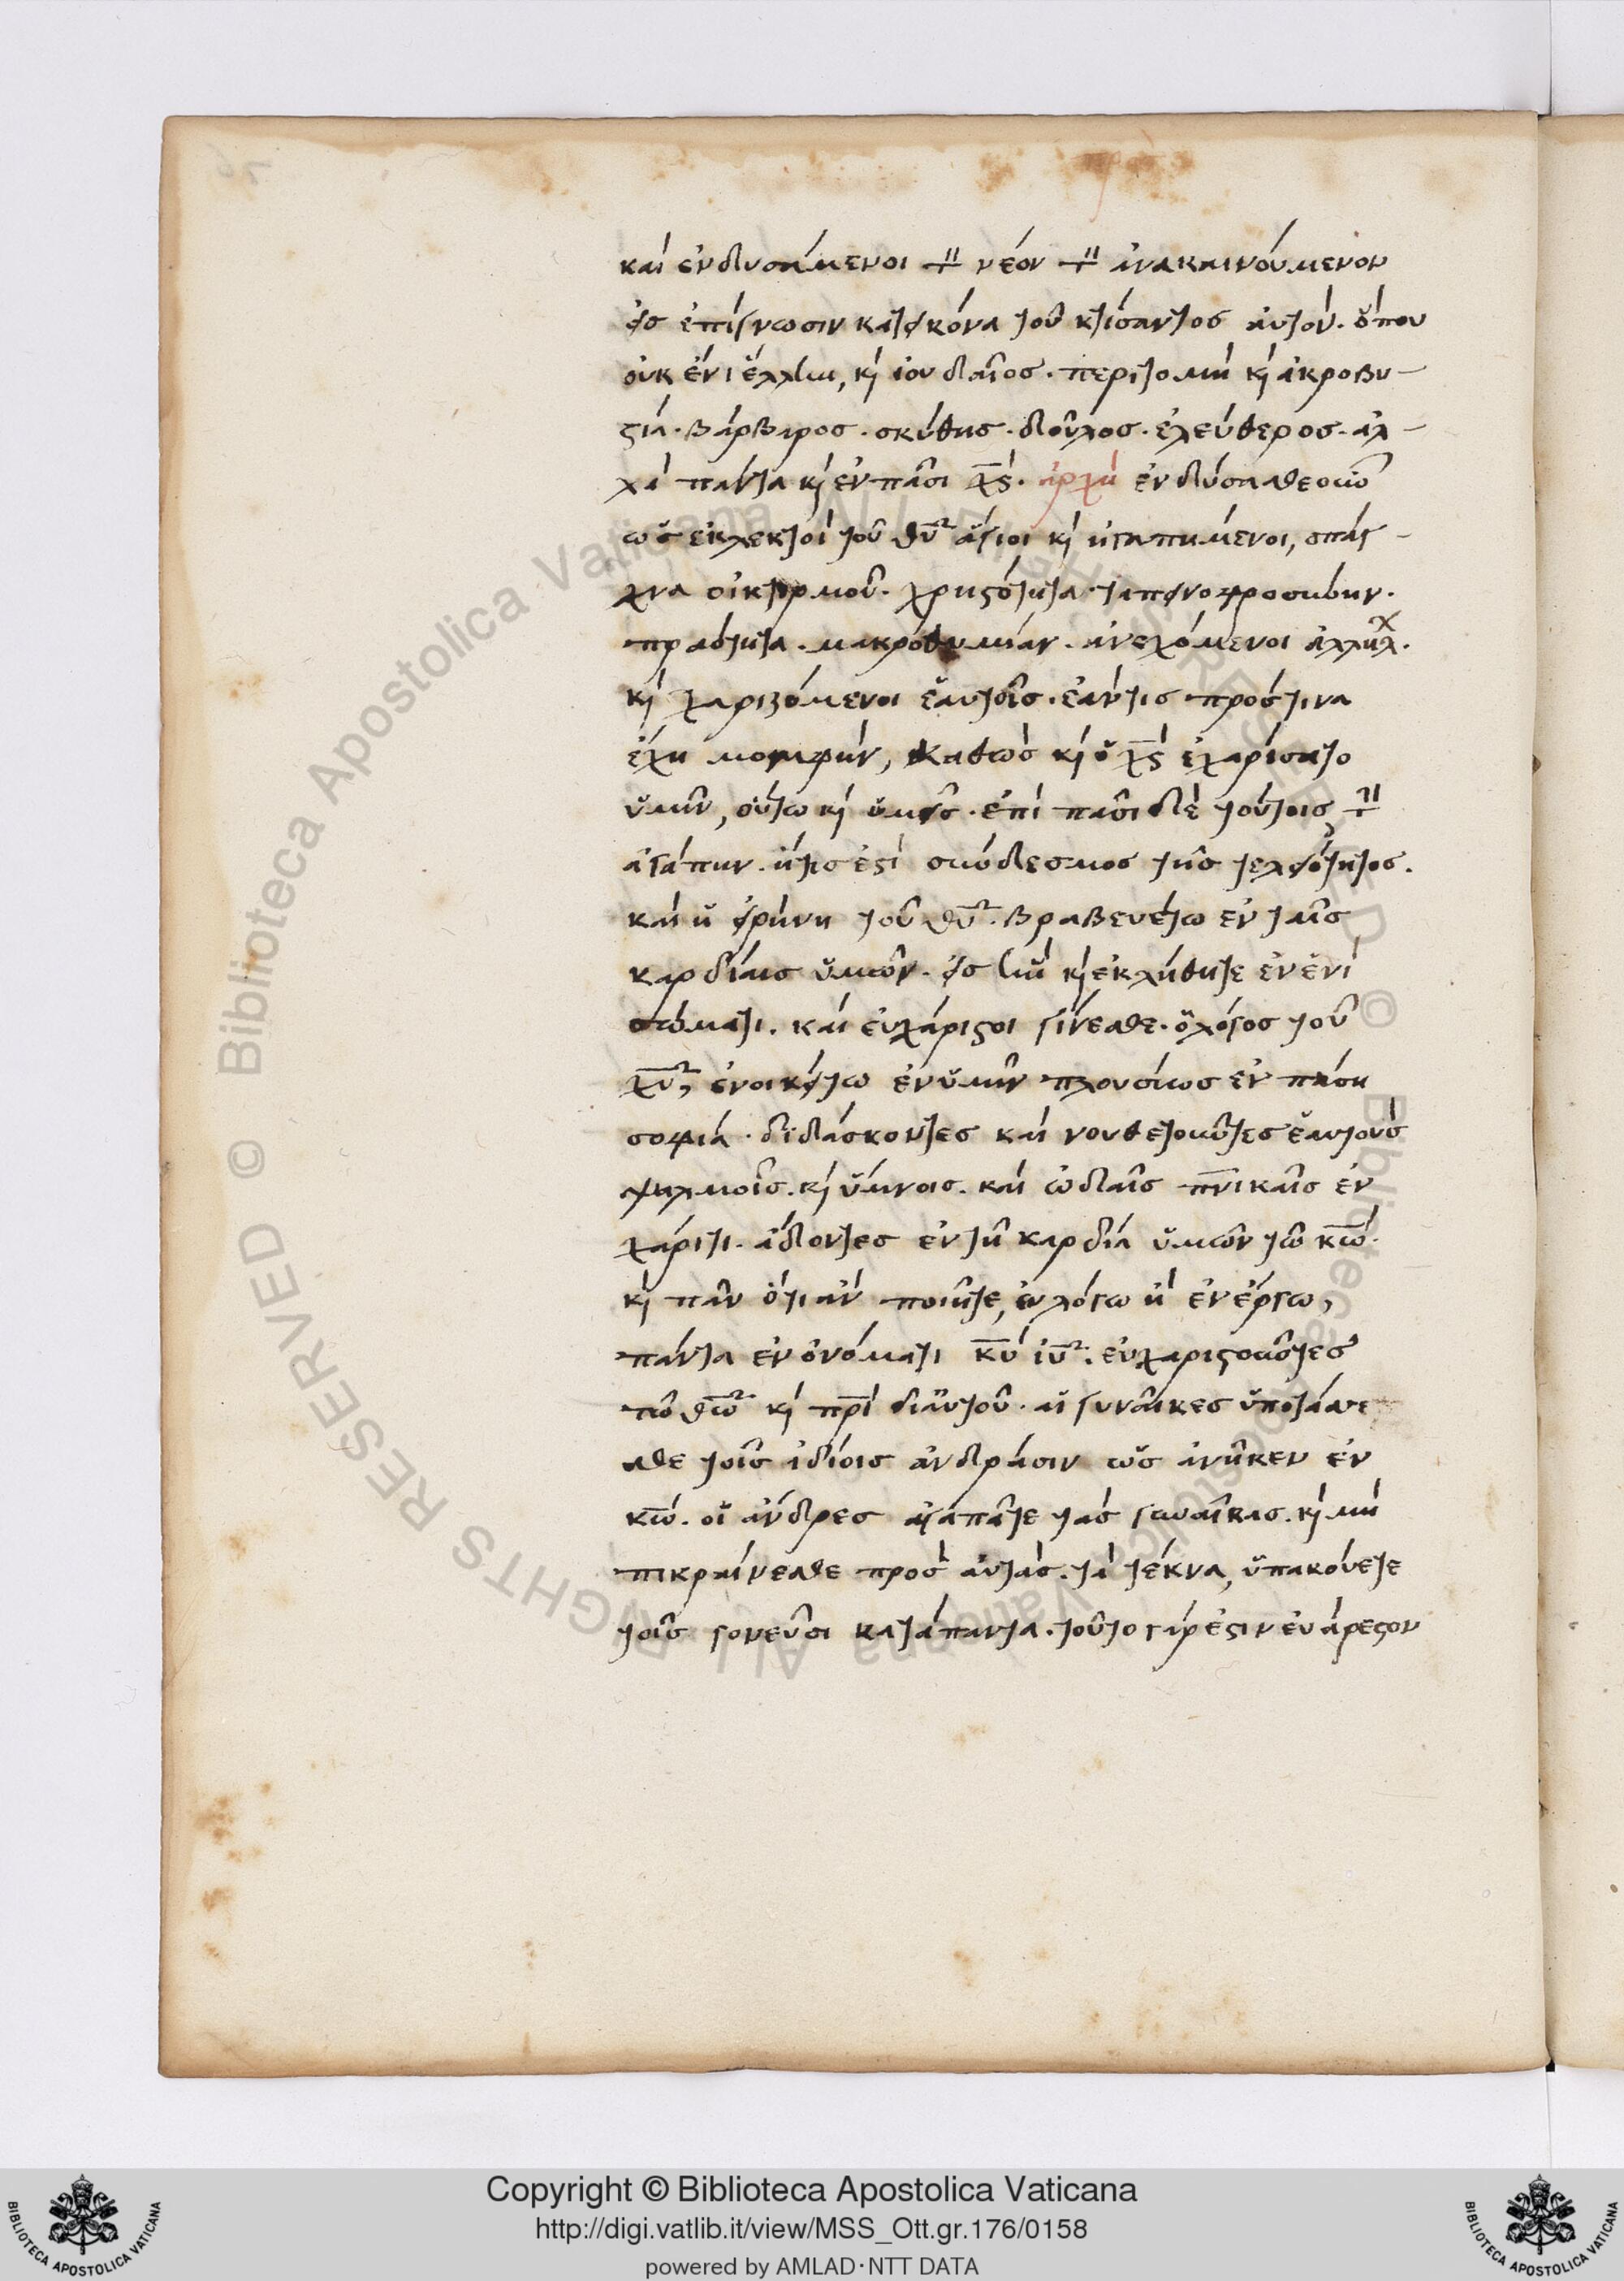 καὶ ἐνδυσάμενοι τὸν νέον τὸν ἀνακαινούμενον
εἰς ἐπίγνωσιν κατεικόνα τοῦ κτίσαντος αὐτόν. ὅπου
οὐκ ἔνι ἕλλην, κὶ ἰουδαῖος. περιτομὴ κὶ ἀκροβυ-
στία. βάρβαρος. σκύθης. δοῦλος. ἐλεύθερος. ἀλ-
λὰ πάντα κὶ ἐν πᾶσι χς. ἀρχὴ ἐνδύσασθε οὖν
ὡς ἐκλεκτοὶ τοῦ θυ ἅγιοι κὶ ἠγαπημένοι, σπλάγ-
χνα οἰκτιρμοῦ. χρηστότητα. ταπεινοφροσύνην.
πραότητα. μακροθυμίαν. ἀνεχόμενοι ἀλλήλ.
κὶ χαριζόμενοι ἑαυτοῖς. ἐάν τις πρός τινα
ἔχη μομφήν, καθὼς κὶ ὁ χς ἐχαρίσατο
ὑμῖν, οὕτω κὶ ὑμεῖς. ἐπὶ πᾶσι δὲ τούτοις τὴν
ἀγάπην. ἥτις ἐστὶ σύνδεσμος τῆς τελειότητος.
καὶ ἡ εἰρήνη τοῦ θυ. βραβευέτω ἐν ταῖς
καρδίαις ὑμῶν. εἰς ἣν κὶ ἐκλήθητε ἐν ἑνὶ
σώματι. καὶ εὐχάριστοι γίνεσθε. ὁ λόγος τοῦ
χυ, ἐνοικείτω ἐν ὑμῖν πλουσίως ἐν πάση
σοφία. διδάσκοντες καὶ νουθετοῦντες ἑαυτοὺς
ψαλμοῖς. κὶ ὕμνοις. καὶ ὠδαῖς πνικαῖς ἐν
χάριτι. ἄδοντες ἐν τῆ καρδία ὑμῶν τῶ κω.
κὶ πᾶν ὅτι ἂν ποιῆτε, ἐν λόγω ἢ ἐν ἔργω,
πάντα ἐν ὀνόματι κυ ιυ. εὐχαριστοῦντες
τῶ θω κὶ πρι δι αὐτοῦ. αἱ γυναῖκες ὑποτάσσε
σθε τοῖς ἰδίοις ἀνδράσιν ὡς ἀνῆκεν ἐν
κω. οἱ ἄνδρες ἀγαπᾶτε τὰς γυναῖκας. κὶ μὴ
πικραίνεσθε πρὸς αὐτάς. τὰ τέκνα, ὑπακούετε
τοῖς γονεῦσι κατάπαντα. τοῦτο γάρ ἐστιν εὐάρεστον
Copyright © Biblioteca Apostolica Vaticana
http://digi.vatlib.it/view/MSS_Ott.gr.176/0158
powered by AMLAD·NTT DATA
BIBLIOTECA APOSTOLICA VATICANA
BIBLIOTECA APOSTOLICA VATICANA